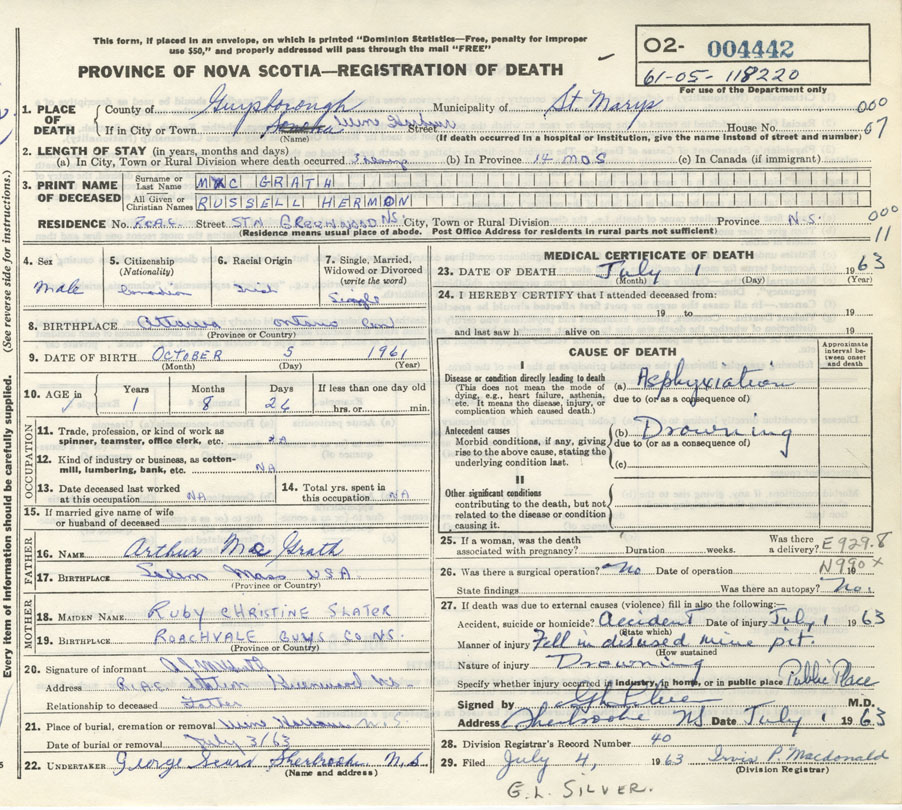 This form, if placed in an envelope, on which is printed "Dominion Statistics—Free, penalty for improper
use $50," and properly addressed will pass through the mail "FREE"
PROVINCE OF NOVA SCOTIA—REGISTRATION OF DEATH
O2- 004442
61-05-118220
For use of the Department only
1. PLACE OF DEATH County of Guysborough Municipality of St Marys 000
If in City or Town Wine Harbour Street House No. 67
(Name) (If death occurred in a hospital or institution, give the name instead of street and number)
2. LENGTH OF STAY (in years, months and days)
(a) In City, Town or Rural Division where death occurred 3 (b) In Province 14 MOS (c) In Canada (if immigrant)
3. PRINT NAME OF DECEASED Surname or Last Name MC GRATH
All Given or Christian Names RUSSELL HERMON
RESIDENCE No. R.C.A.F. Street STN GREENWOOD NS. City, Town or Rural Division Province N.S. 000
(Residence means usual place of abode. Post Office Address for residents in rural parts not sufficient) 11
(See reverse side for instructions.)
Every item of information should be carefully supplied.
4. Sex 5. Citizenship (Nationality) 6. Racial Origin 7. Single, Married, Widowed or Divorced (write the word)
Male Canadian Irish Single
8. BIRTHPLACE Ottawa Ontario Can
(Province or Country)
9. DATE OF BIRTH OCTOBER 5 1961
(Month) (Day) (Year)
10. AGE Years Months Days If less than one day old
1 8 26 hrs. or min.
OCCUPATION
11. Trade, profession, or kind of work as spinner, teamster, office clerk, etc.
12. Kind of industry or business, as cotton-mill, lumbering, bank, etc. NA
13. Date deceased last worked at this occupation NA 14. Total yrs. spent in this occupation NA
15. If married give name of wife or husband of deceased
FATHER
16. NAME Arthur McGrath
17. BIRTHPLACE Salem Mass USA
(Province or Country)
MOTHER
18. MAIDEN NAME RUBY CHRISTINE SLATER
19. BIRTHPLACE ROACHVALE GUYS CO NS.
(Province or Country)
20. Signature of informant
Address Station Greenwood NS
Relationship to deceased Father
21. Place of burial, cremation or removal Wine Harbour N.S
Date of burial or removal July 3/63
22. UNDERTAKER George Sherbrooke N.S
(Name and address)
MEDICAL CERTIFICATE OF DEATH
23. DATE OF DEATH July 1 1963
(Month) (Day) (Year)
24. I HEREBY CERTIFY that I attended deceased from:
19 to 19
and last saw h alive on 19
CAUSE OF DEATH
Approximate interval between onset and death
I
Disease or condition directly leading to death (a) Asphyxiation
(This does not mean the mode of dying, e.g., heart failure, asthenia, etc. It means the disease, injury, or complication which caused death.)
due to (or as a consequence of)
Antecedent causes (b) Drowning
Morbid conditions, if any, giving rise to the above cause, stating the underlying condition last.
due to (or as a consequence of)
(c)
II
Other significant conditions
contributing to the death, but not related to the disease or condition causing it.
25. If a woman, was the death associated with pregnancy? Duration weeks. Was there a delivery? E929.8
26. Was there a surgical operation? No Date of operation 19 N990 x
State findings Was there an autopsy? No.
27. If death was due to external causes (violence) fill in also the following:—
Accident, suicide or homicide? Accident Date of injury July 1 1963
(State which)
Manner of injury Fell in disused mine pit.
(How sustained
Nature of injury Drowning
Specify whether injury occurred in industry, in home, or in public place Public Place
Signed by M.D.
Address Sherbrooke NS Date July 1 1963
28. Division Registrar's Record Number 40
29. Filed July 4, 1963 Irvis P. Macdonald
(Division Registrar)
G.L. SILVER.